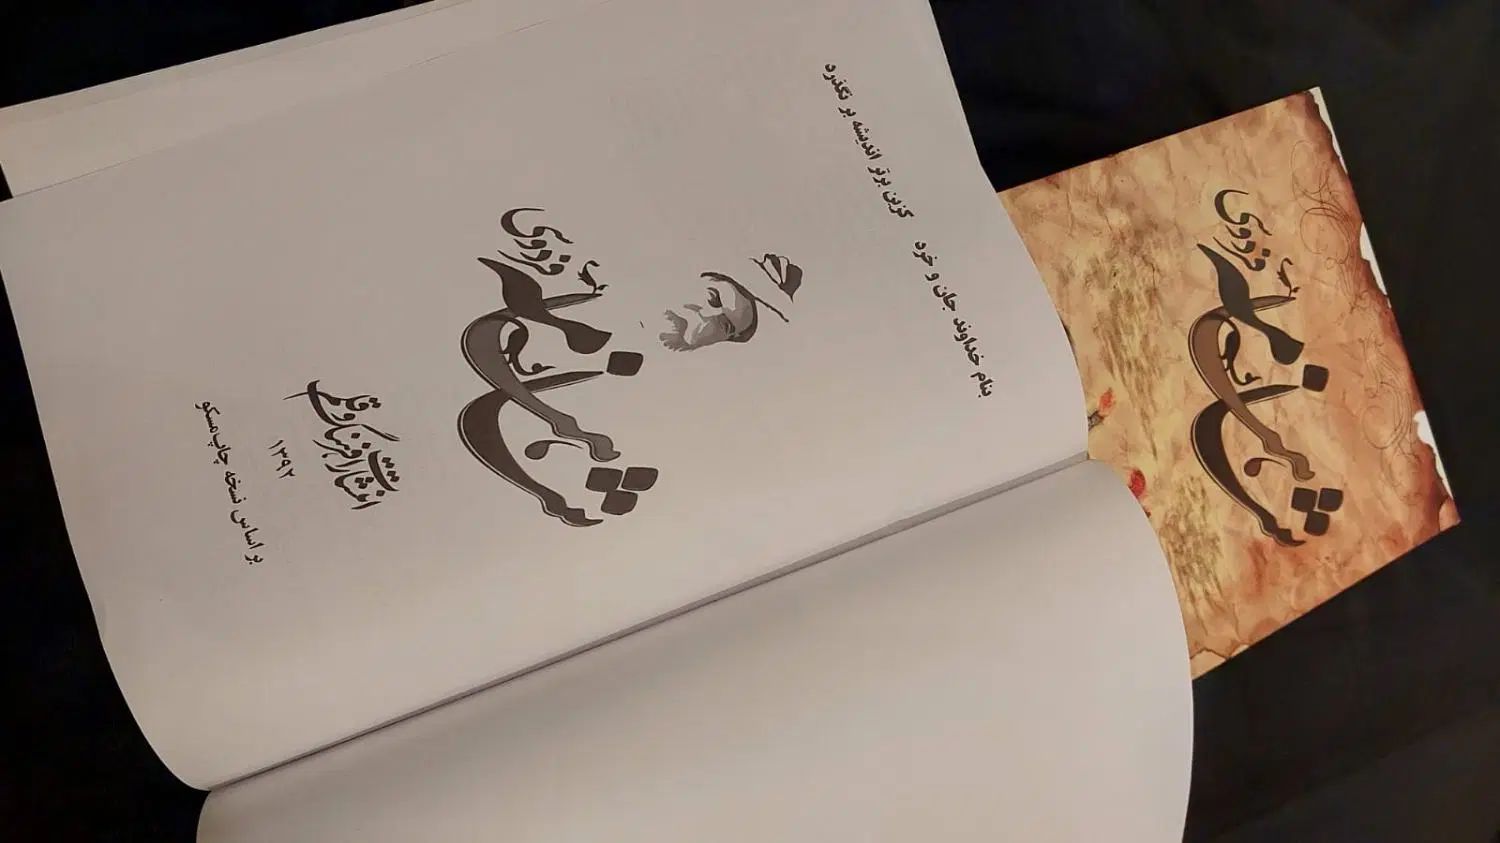 بنام خداوند جان و خرد
کزین برتر اندیشه بر نگذرد
شاهنامه
فردوسی
انتشارات فرهنگ و قلم
۱۳۹۲
بر اساس نسخه چاپ مسکو
شاهنامه
فردوسی